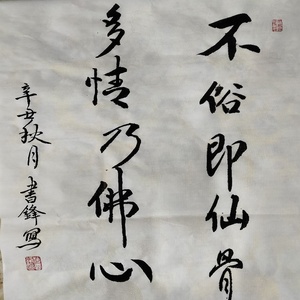 不俗即仙骨
多情乃佛心
辛丑秋月 书锋写